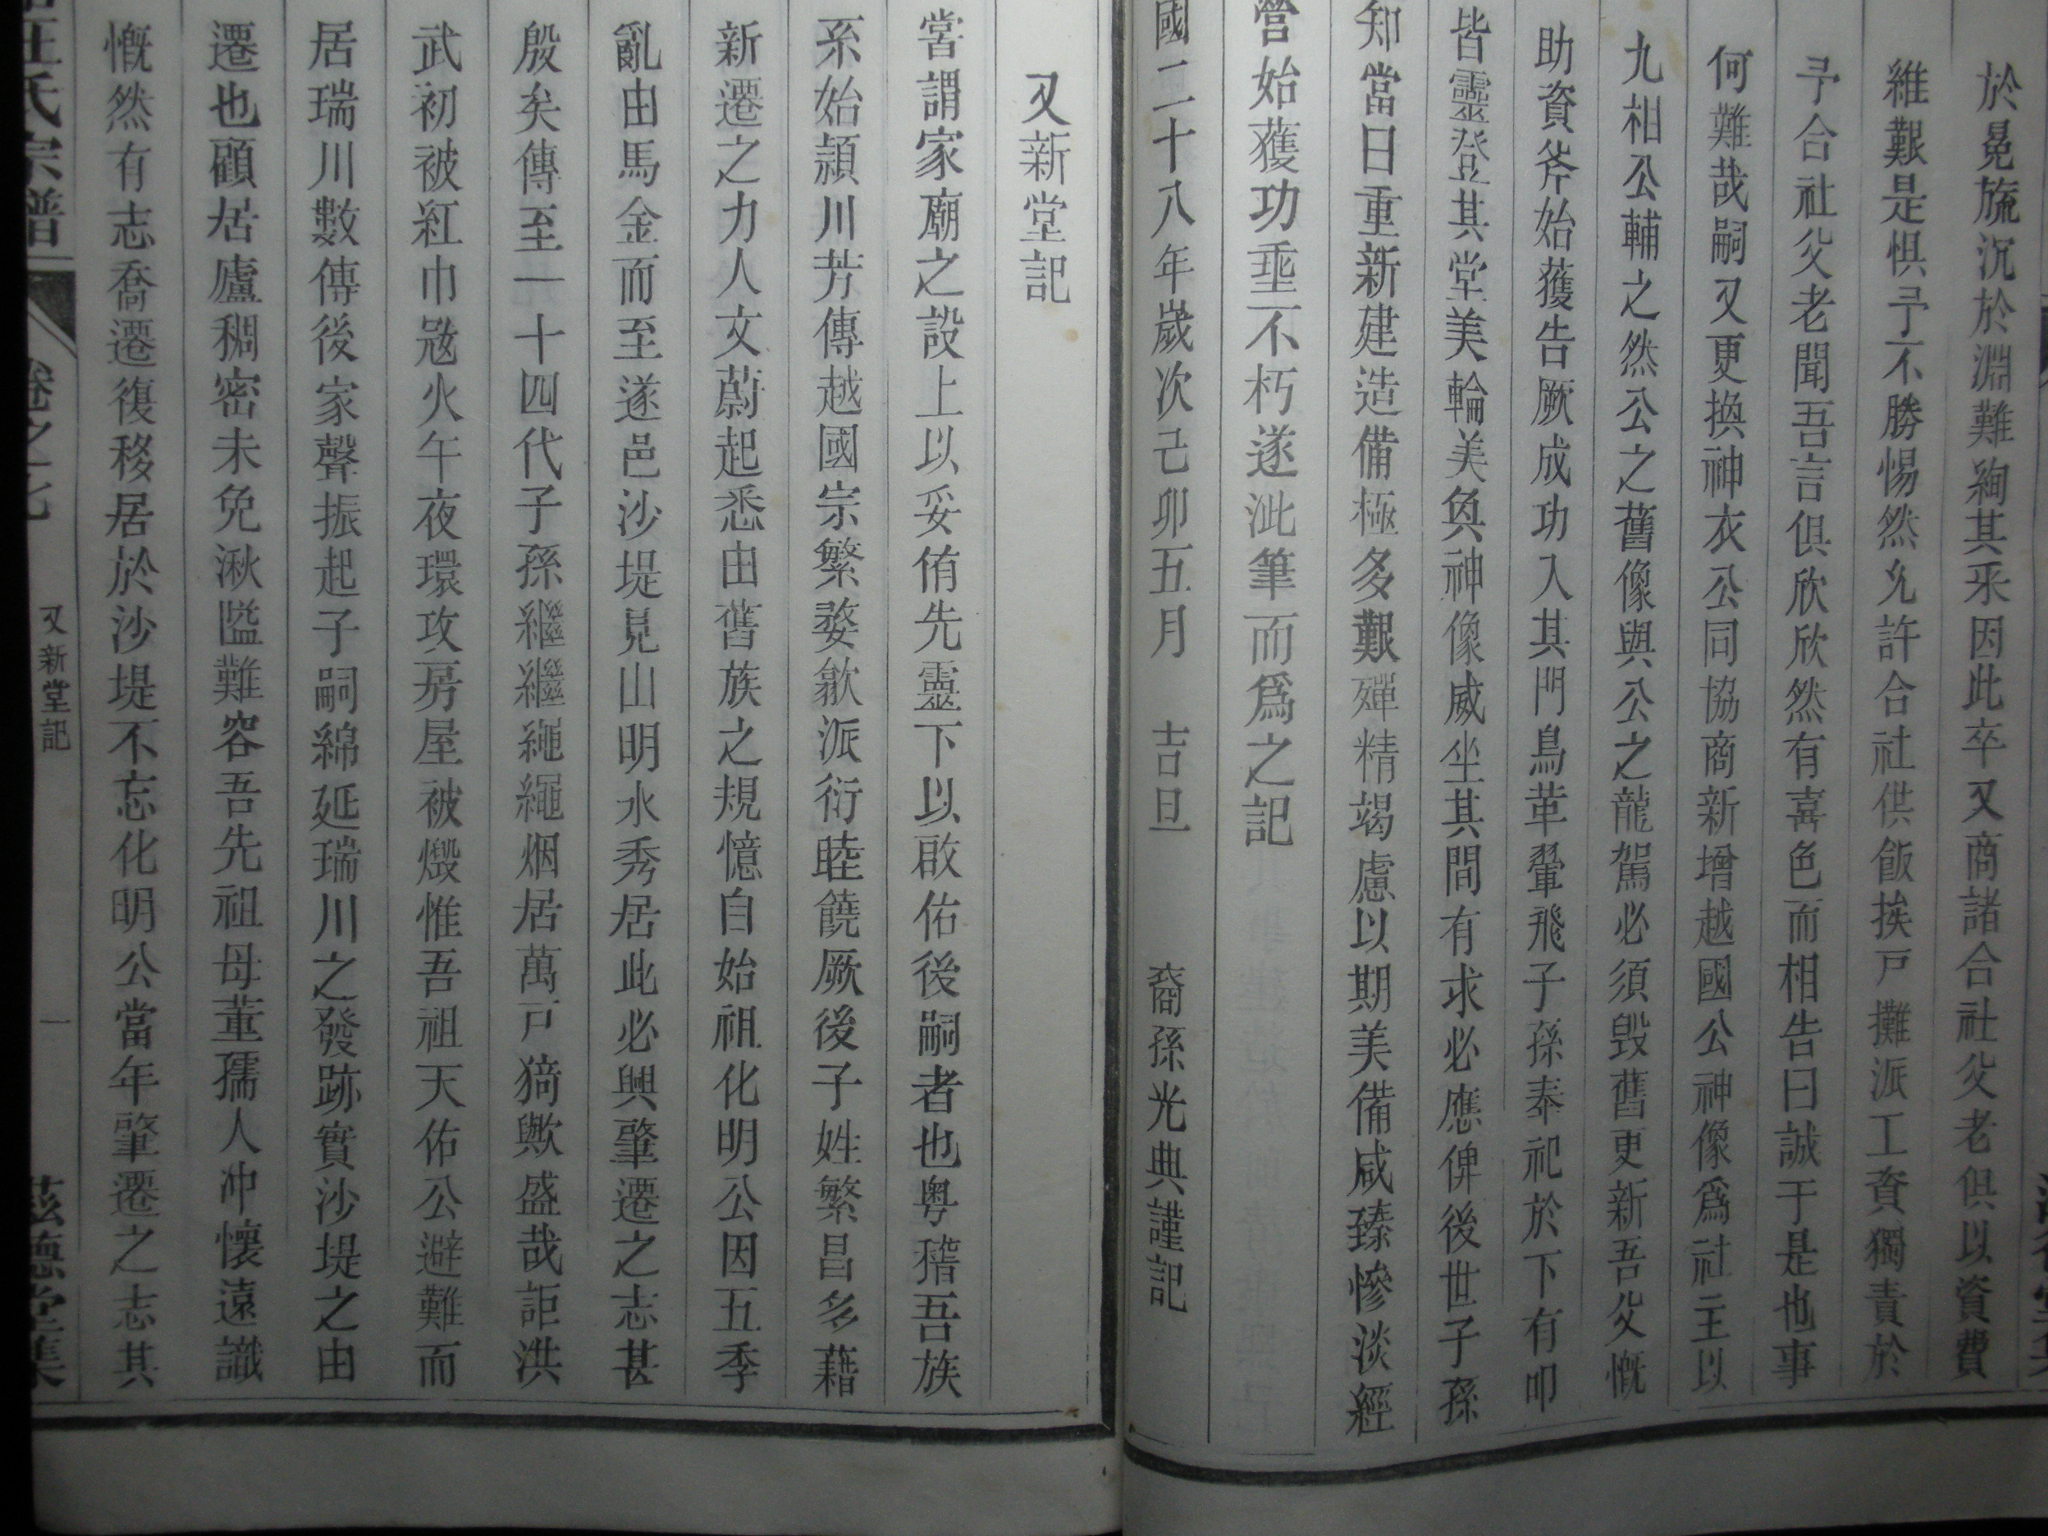 於冕旒沉於淵難絢其采因此卒又商諸合社父老俱以資費
維艱是惧予不勝惕然允許合社供飯挨戸攤派工資獨責於
予合社父老聞吾言俱欣欣然有喜色而相告曰誠于是也事
何難哉嗣又更換神衣公同協商新增越國公神像爲社主以
九相公輔之然公之舊像與公之龍駕必須毀舊更新吾父慨
助資斧始獲告厥成功入其門鳥革翬飛子孫奉祀於下有叩
皆靈登其堂美輪美奐神像威坐其間有求必應俾後世子孫
知當日重新建造備極多艱殫精竭慮以期美備咸臻慘淡經
營始獲功垂不朽遂泚筆而爲之記
國二十八年歲次己卯五月 吉旦 裔孫光典謹記
又新堂記
甞謂家廟之設上以妥侑先靈下以啟佑後嗣者也粤稽吾族
系始頴川芳傳越國宗繁婺歙派衍睦饒厥後子姓繁昌多藉
新遷之力人文蔚起悉由舊族之規憶自始祖化明公因五季
亂由馬金而至遂邑沙堤見山明水秀居此必興肇遷之志甚
殷矣傳至一十四代子孫繼繼繩繩烟居萬戸猗歟盛哉詎洪
武初被紅巾㓂火午夜環攻房屋被燬惟吾祖天佑公避難而
居瑞川數傳後家聲振起子嗣綿延瑞川之發跡實沙堤之由
遷也顧居廬稠密未免湫隘難容吾先祖母董孺人冲懷遠識
慨然有志喬遷復移居於沙堤不忘化明公當年肇遷之志其
汪氏宗譜 卷之七 又新堂記 一 茲德堂集